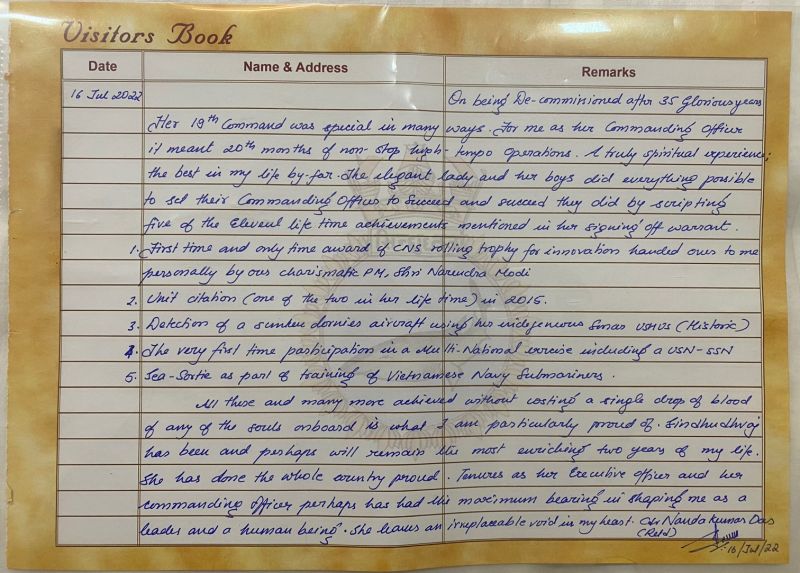 Visitors Book
Date Name & Address Remarks
16 Jul 2022 On being De-commissioned after 35 Glorious years
Her 19th Command was special in many ways. For me as her Commanding Officer
it meant 20th months of non-stop high-tempo operations. A truly spiritual experience;
the best in my life by-far. The elegant lady and her boys did everything possible
to set their Commanding Officer to Succeed and succeed they did by scripting
five of the Eleven life time achievements mentioned in her signing off warrant.
1. First time and only time award of CNS rolling trophy for innovation handed over to me
personally by our charismatic PM, Shri Narendra Modi
2. Unit citation (one of the two in her life time) in 2015.
3. Detection of a sunken dornier aircraft using her indegenous Sonar USHUS (Historic)
4. The very first time participation in a Multi-National exercise including a USN-SSN
5. Sea-Sortie as part of training of Vietnamese Navy Submariners.
All these and many more achieved without costing a single drop of blood
of any of the souls onboard is what I am particularly proud of. Sindhudhvaj
has been and perhaps will remain the most enriching two years of my life.
She has done the whole country proud. Tenures as her Executive officer and her
commanding officer perhaps has had the maximum bearing in shaping me as a
leader and a human being. She leaves an irreplaceable void in my heart. Cdr Nanda Kumar Das
(Retd)
16/Jul/22